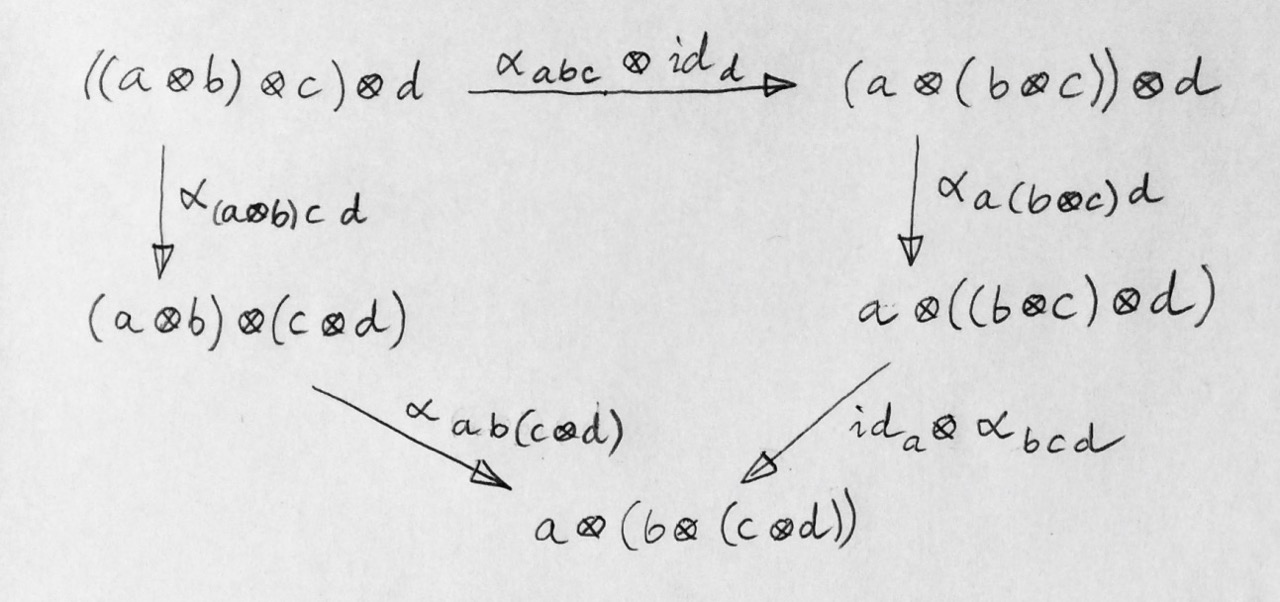 ((a ⊗ b) ⊗ c) ⊗ d
α_{abc} ⊗ id_d
(a ⊗ (b ⊗ c)) ⊗ d
α_{(a⊗b) c d}
α_{a (b⊗c) d}
(a ⊗ b) ⊗ (c ⊗ d)
a ⊗ ((b ⊗ c) ⊗ d)
α_{a b (c⊗d)}
id_a ⊗ α_{b c d}
a ⊗ (b ⊗ (c ⊗ d))